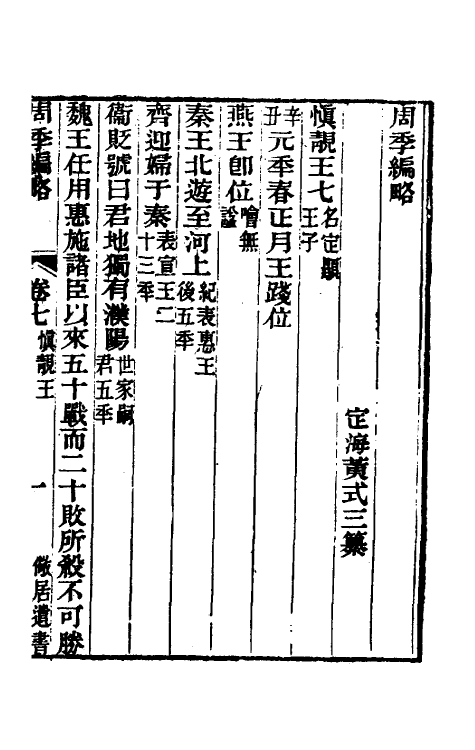 周季編略
定海黃式三纂
慎靚王七名定顯王子
辛丑元年春正月王踐位
燕王卽位噲無諡
秦王北遊至河上紀表惠王後五年
齊迎婦于秦表宣王二十三年
衞貶號曰君地獨有濮陽世家嗣君五年
魏王任用惠施諸臣以來五十戰而二十敗所殺不可勝
周季編略 卷七 慎靚王 一 儆居遺書